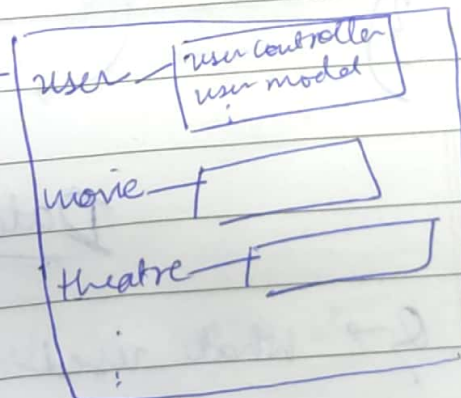 user
user controller
user model
movie
theatre